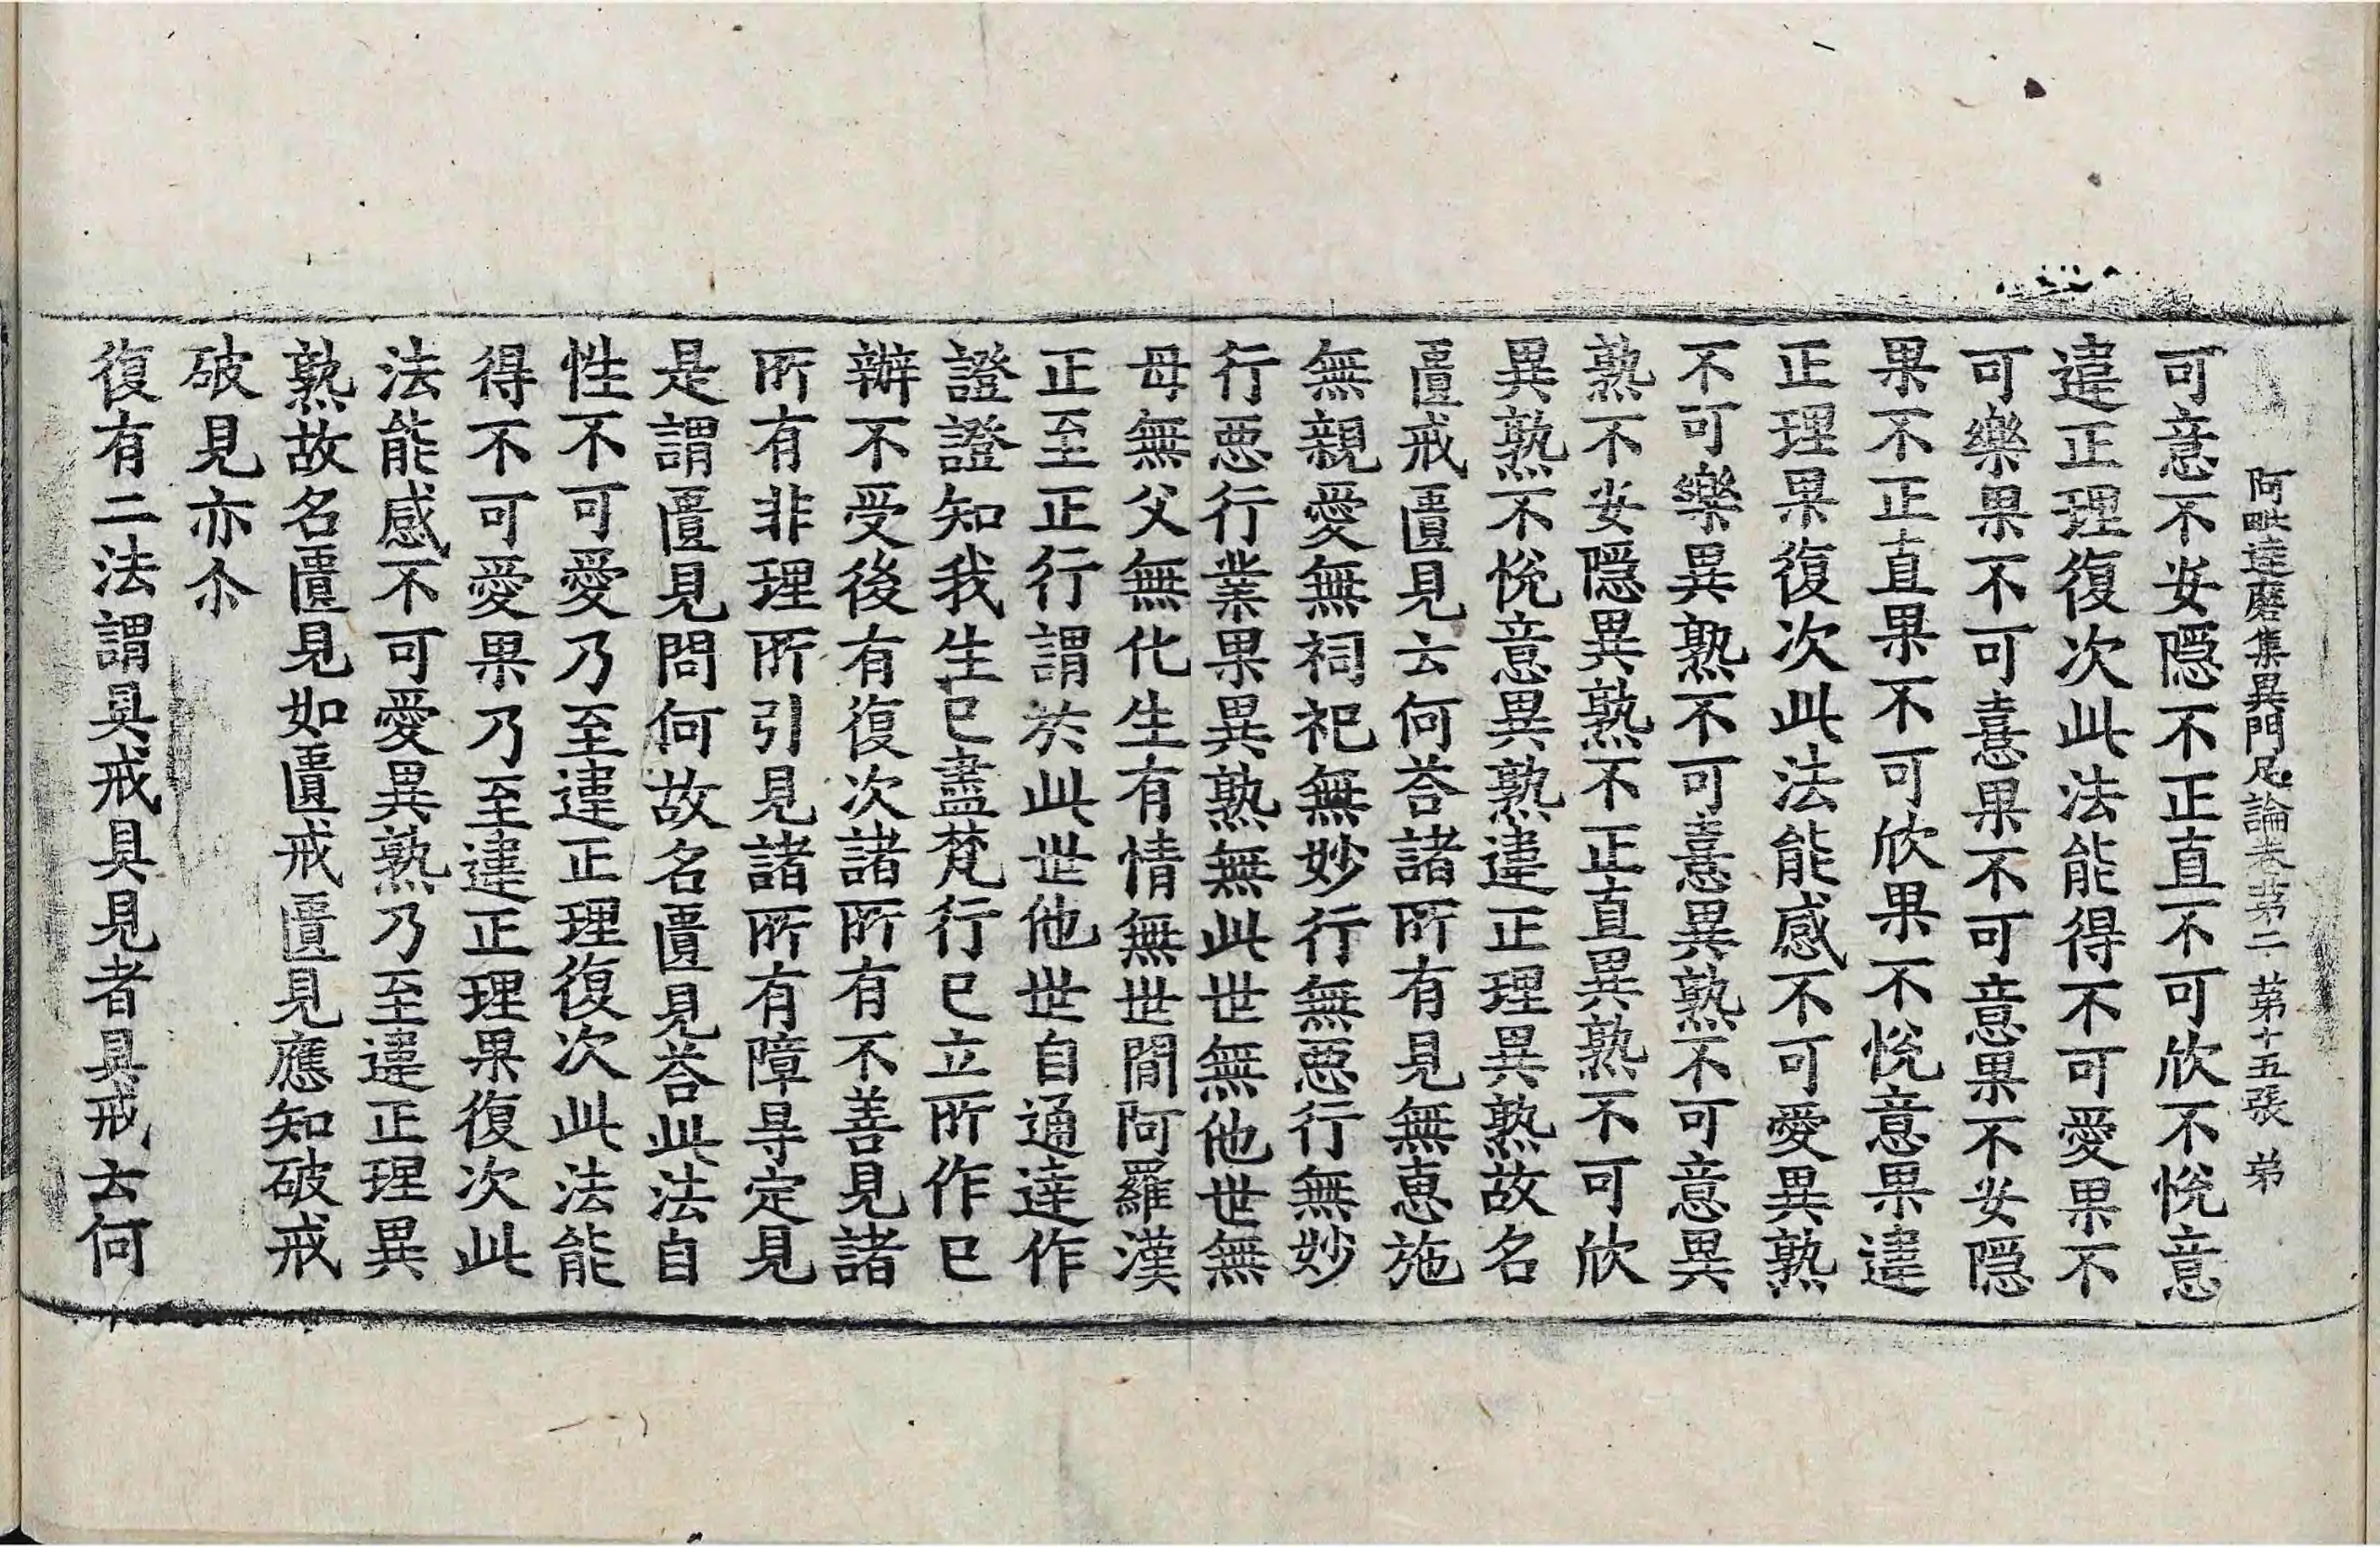 阿毗達磨集異門足論卷第二 第十五張 弟
可意不安隱不正直不可欣不悅意
違正理復次此法能得不可愛果不
可樂果不可憙果不可意果不安隱
果不正直果不可欣果不悅意果違
正理果復次此法能感不可愛異熟
不可樂異熟不可憙異熟不可意異
熟不安隱異熟不正直異熟不可欣
異熟不悅意異熟違正理異熟故名
匱戒匱見云何荅諸所有見無惠施
無親愛無祠祀無妙行無惡行無妙
行惡行業果異熟無此世無他世無
母無父無化生有情無世間阿羅漢
正至正行謂於此世他世自通達作
證證知我生已盡梵行已立所作已
辦不受後有復次諸所有不善見諸
所有非理所引見諸所有障㝵定見
是謂匱見問何故名匱見荅此法自
性不可愛乃至違正理復次此法能
得不可愛果乃至違正理果復次此
法能感不可愛異熟乃至違正理異
熟故名匱見如匱戒匱見應知破戒
破見亦尒
復有二法謂具戒具見者具戒云何